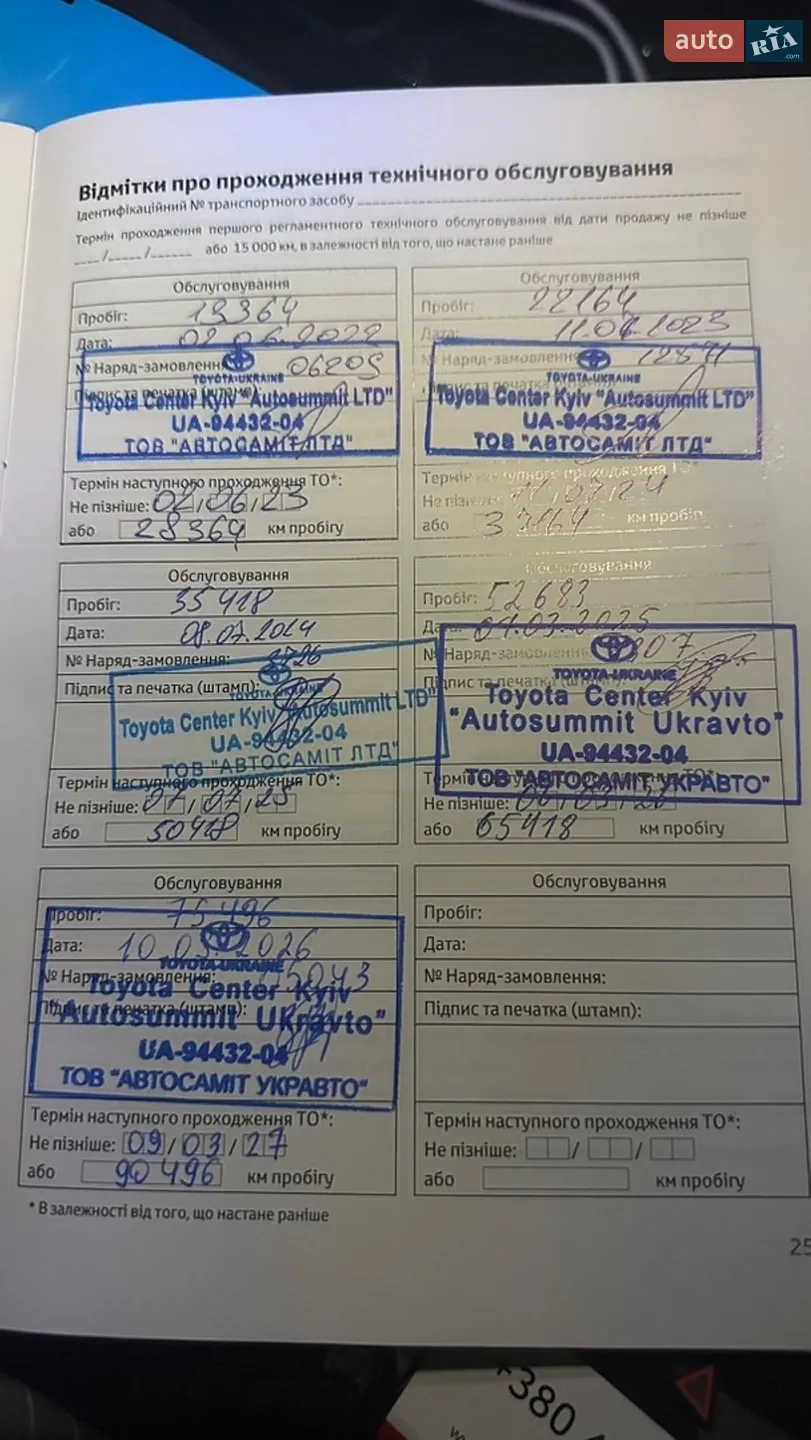 auto RIA
.com
Відмітки про проходження технічного обслуговування
Ідентифікаційний № транспортного засобу
Термін проходження першого регламентного технічного обслуговування від дати продажу не пізніше
___/____/_____ або 15 000 км, в залежності від того, що настане раніше
Обслуговування
Пробіг: 13364
Дата: 02.06.2022
№ Наряд-замовлення: 06205
Підпис та печатка (штамп):
TOYOTA-UKRAINE
Toyota Center Kyiv "Autosummit LTD"
UA-94432-04
ТОВ "АВТОСАМІТ ЛТД"
Термін наступного проходження ТО*:
Не пізніше: 02/06/23
або 28364 км пробігу
Обслуговування
Пробіг: 22164
Дата: 11.07.2023
№ Наряд-замовлення: 12871
Підпис та печатка
TOYOTA-UKRAINE
Toyota Center Kyiv "Autosummit LTD"
UA-94432-04
ТОВ "АВТОСАМІТ ЛТД"
Термін наступного проходження ТО*
Не пізніше: 11/07/24
або 33164 км пробігу
Обслуговування
Пробіг: 35418
Дата: 08.07.2024
№ Наряд-замовлення: 3726
Підпис та печатка (штамп):
TOYOTA-UKRAINE
Toyota Center Kyiv "Autosummit LTD"
UA-94432-04
ТОВ "АВТОСАМІТ ЛТД"
Термін наступного проходження ТО*:
Не пізніше: 07/07/25
або 50418 км пробігу
Обслуговування
Пробіг: 52683
Дата: 07.03.2025
№ Наряд-замовлення: 807
Підпис та печатка (штамп):
TOYOTA-UKRAINE
Toyota Center Kyiv
"Autosummit Ukravto"
UA-94432-04
ТОВ "АВТОСАМІТ УКРАВТО"
Термін наступного проходження ТО*:
Не пізніше: 06/03/26
або 65418 км пробігу
Обслуговування
Пробіг: 75496
Дата: 10.03.2026
№ Наряд-замовлення: 5043
Підпис та печатка (штамп):
TOYOTA-UKRAINE
Toyota Center Kyiv
"Autosummit Ukravto"
UA-94432-04
ТОВ "АВТОСАМІТ УКРАВТО"
Термін наступного проходження ТО*:
Не пізніше: 09/03/27
або 90496 км пробігу
Обслуговування
Пробіг:
Дата:
№ Наряд-замовлення:
Підпис та печатка (штамп):
Термін наступного проходження ТО*:
Не пізніше: / /
або км пробігу
* В залежності від того, що настане раніше
25
+380